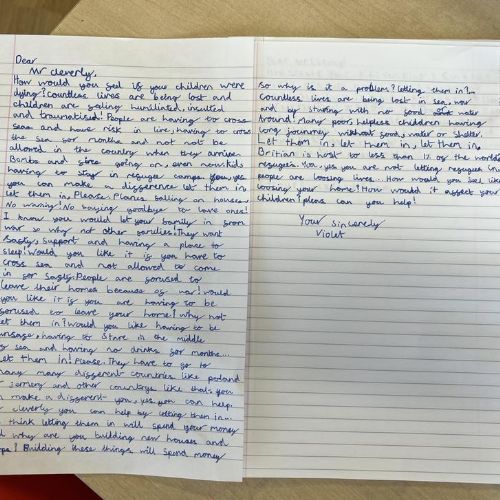 Dear
Mr cleverly,
How would you feel if your children were
dying? Countless lives are being lost and
children are feeling humiliated, insulted
and traumatised! People are having to cross
sea and have risk in live, having to cross
the sea for months and not not be
allowed in the country when they arrive.
Bombs and fire going on, even now kids
having to stay in refugee camps. You, yes
you can make a difference let them in
let them in, Please. Planes falling on houses,
No waving! No saying goodbye to love ones!
I know you would let your family in from
war so why not other families! They want
safty, support and having a place to
sleep! Would you like it if you have to
cross sea and not allowed to come
in for safty. People are forused to
leave their homes because of war! Would
you like it if you are having to be
forused to leave your home! Why not
let them in! Would you like having to be
unsafe, having to starve in the middle
of sea and having no drinks for months...
let them in! Please. They have to go to
many many different countries like poland
or jermeny and other countrys like that. you
can make a different you, yes you can help.
cleverly you can help by letting them in...
think letting them in will spend your money
why are you building new houses and
? Building these things will spend money
so why is it a problem? letting them in!..
Countless lives are being lost in sea, war
and by starving with not food or water
Around! Many poor, helpless children having
long journney without food, water or shelter.
Let them in, let them in, let them in.
Britian is host to less than 1% of the worlds
refugees. You, yes you are not letting refugees in
people are loosing lives. How would you feel like
loosing your home! How would it affect your
children! pleas can you help!
Your sincerely
Violet